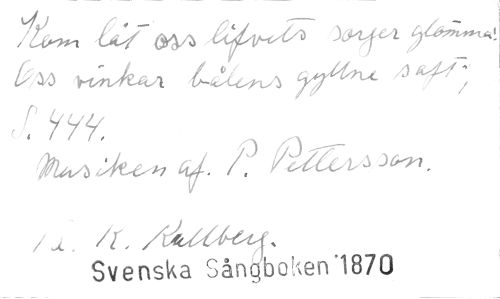 Kom låt oss lifvets sorger glömma!
Oss vinkar bålens gyllne saft;
S. 444.
Musiken af. P. Pettersson.
K. Kullberg.
Svenska Sångboken 1870